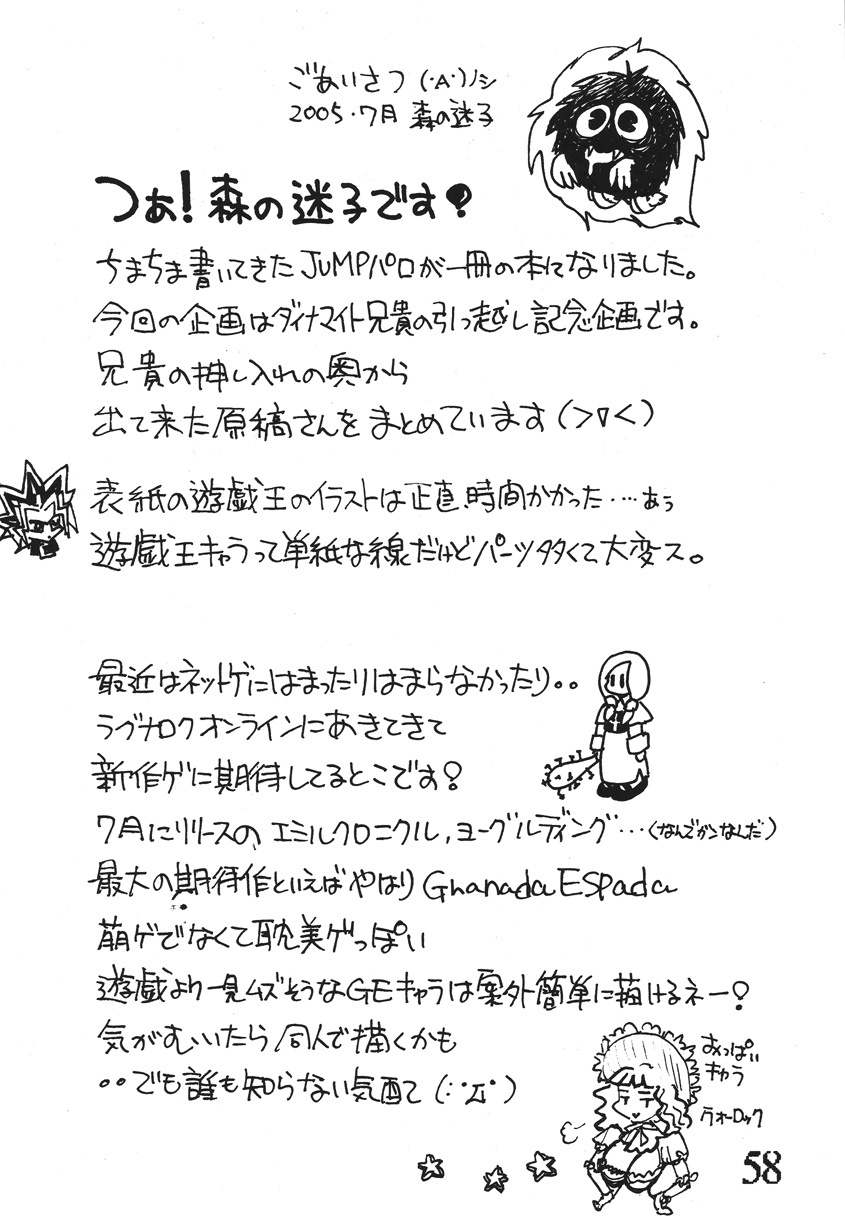 ごあいさつ (・A・)ノシ
2005・7月 森の迷子
つぁ!森の迷子です?
ちまちま書いてきたJUMPパロが一冊の本になりました。
今回の企画はダイナマイト兄貴の引っ越し記念企画です。
兄貴の押し入れの奥から
出て来た原稿さんをまとめています(>∇<)
表紙の遊戯王のイラストは正直、時間かかった‥‥ぁぅ
遊戯王キャラって単純な線だけどパーツ多くて大変ス。
最近はネットゲにはまったりはまらなかったり。。
ラグナロクオンラインにあきてきて
新作ゲに期待してるとこです?
7月にリリースの、エミルクロニクル,ヨーグルディング…(なんでがンなんだ)
最大の期待作といえばやはりGnanada ESPada
萌ゲでなくて耽美ゲっぽい
遊戯より一見ムズそうなGEキャラは案外簡単に描けるネー?
気がむいたら同人で描くかも
。。でも誰も知らない気配て(;゚Д゚)
おっぱい
キャラ
ウォーロック
58